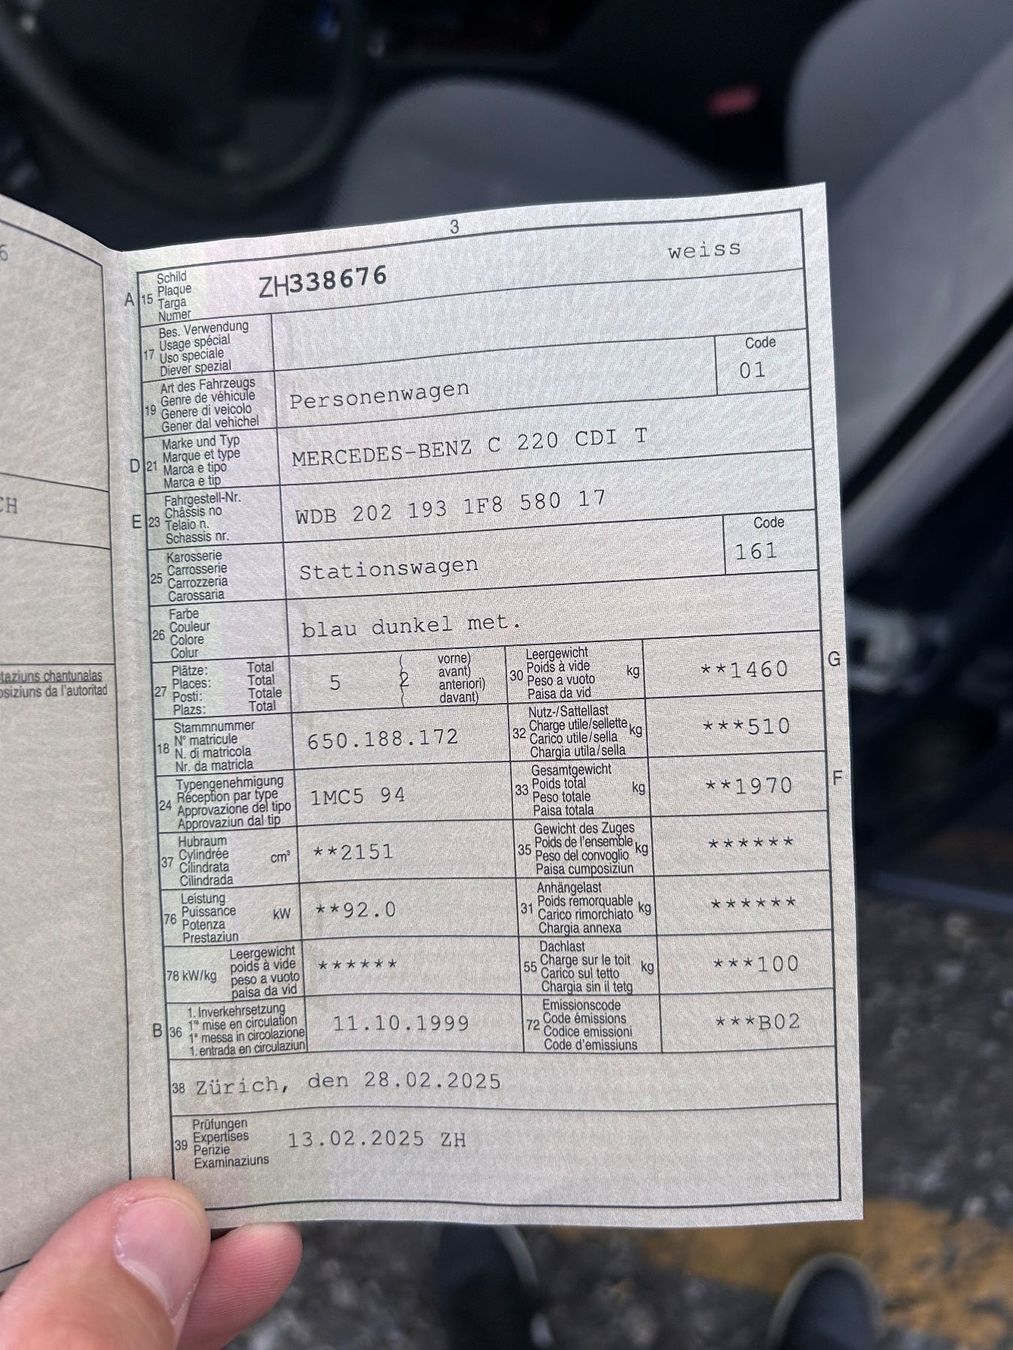 6
3
A 15 Schild
Plaque
Targa
Numer
ZH338676
weiss
17 Bes. Verwendung
Usage spécial
Uso speciale
Diever spezial
19 Art des Fahrzeugs
Genre de véhicule
Genere di veicolo
Gener dal vehichel
Personenwagen
Code
01
D 21 Marke und Typ
Marque et type
Marca e tipo
Marca e tip
MERCEDES-BENZ C 220 CDI T
E 23 Fahrgestell-Nr.
Châssis no
Telaio n.
Schassis nr.
WDB 202 193 1F8 580 17
25 Karosserie
Carrosserie
Carrozzeria
Carossaria
Stationswagen
Code
161
26 Farbe
Couleur
Colore
Colur
blau dunkel met.
27 Plätze: Total
Places: Total
Posti: Totale
Plazs: Total
5 ( 2 vorne)
avant)
anteriori)
davant)
30 Leergewicht
Poids à vide
Peso a vuoto
Paisa da vid
kg
**1460
G
18 Stammnummer
N° matricule
N. di matricola
Nr. da matricla
650.188.172
32 Nutz-/Sattellast
Charge utile/sellette
Carico utile/sella
Chargia utila/sella
kg
***510
24 Typengenehmigung
Réception par type
Approvazione del tipo
Approvaziun dal tip
1MC5 94
33 Gesamtgewicht
Poids total
Peso totale
Paisa totala
kg
**1970
F
37 Hubraum
Cylindrée
Cilindrata
Cilindrada
cm³
**2151
35 Gewicht des Zuges
Poids de l'ensemble
Peso del convoglio
Paisa cumposiziun
kg
******
76 Leistung
Puissance
Potenza
Prestaziun
kW
**92.0
31 Anhängelast
Poids remorquable
Carico rimorchiato
Chargia annexa
kg
******
78 kW/kg
Leergewicht
poids à vide
peso a vuoto
paisa da vid
******
55 Dachlast
Charge sur le toit
Carico sul tetto
Chargia sin il tetg
kg
***100
B 36 1. Inverkehrsetzung
1re mise en circulation
1a messa in circolazione
1. entrada en circulaziun
11.10.1999
72 Emissionscode
Code émissions
Codice emissioni
Code d'emissiuns
***B02
38 Zürich, den 28.02.2025
39 Prüfungen
Expertises
Perizie
Examinaziuns
13.02.2025 ZH
CH